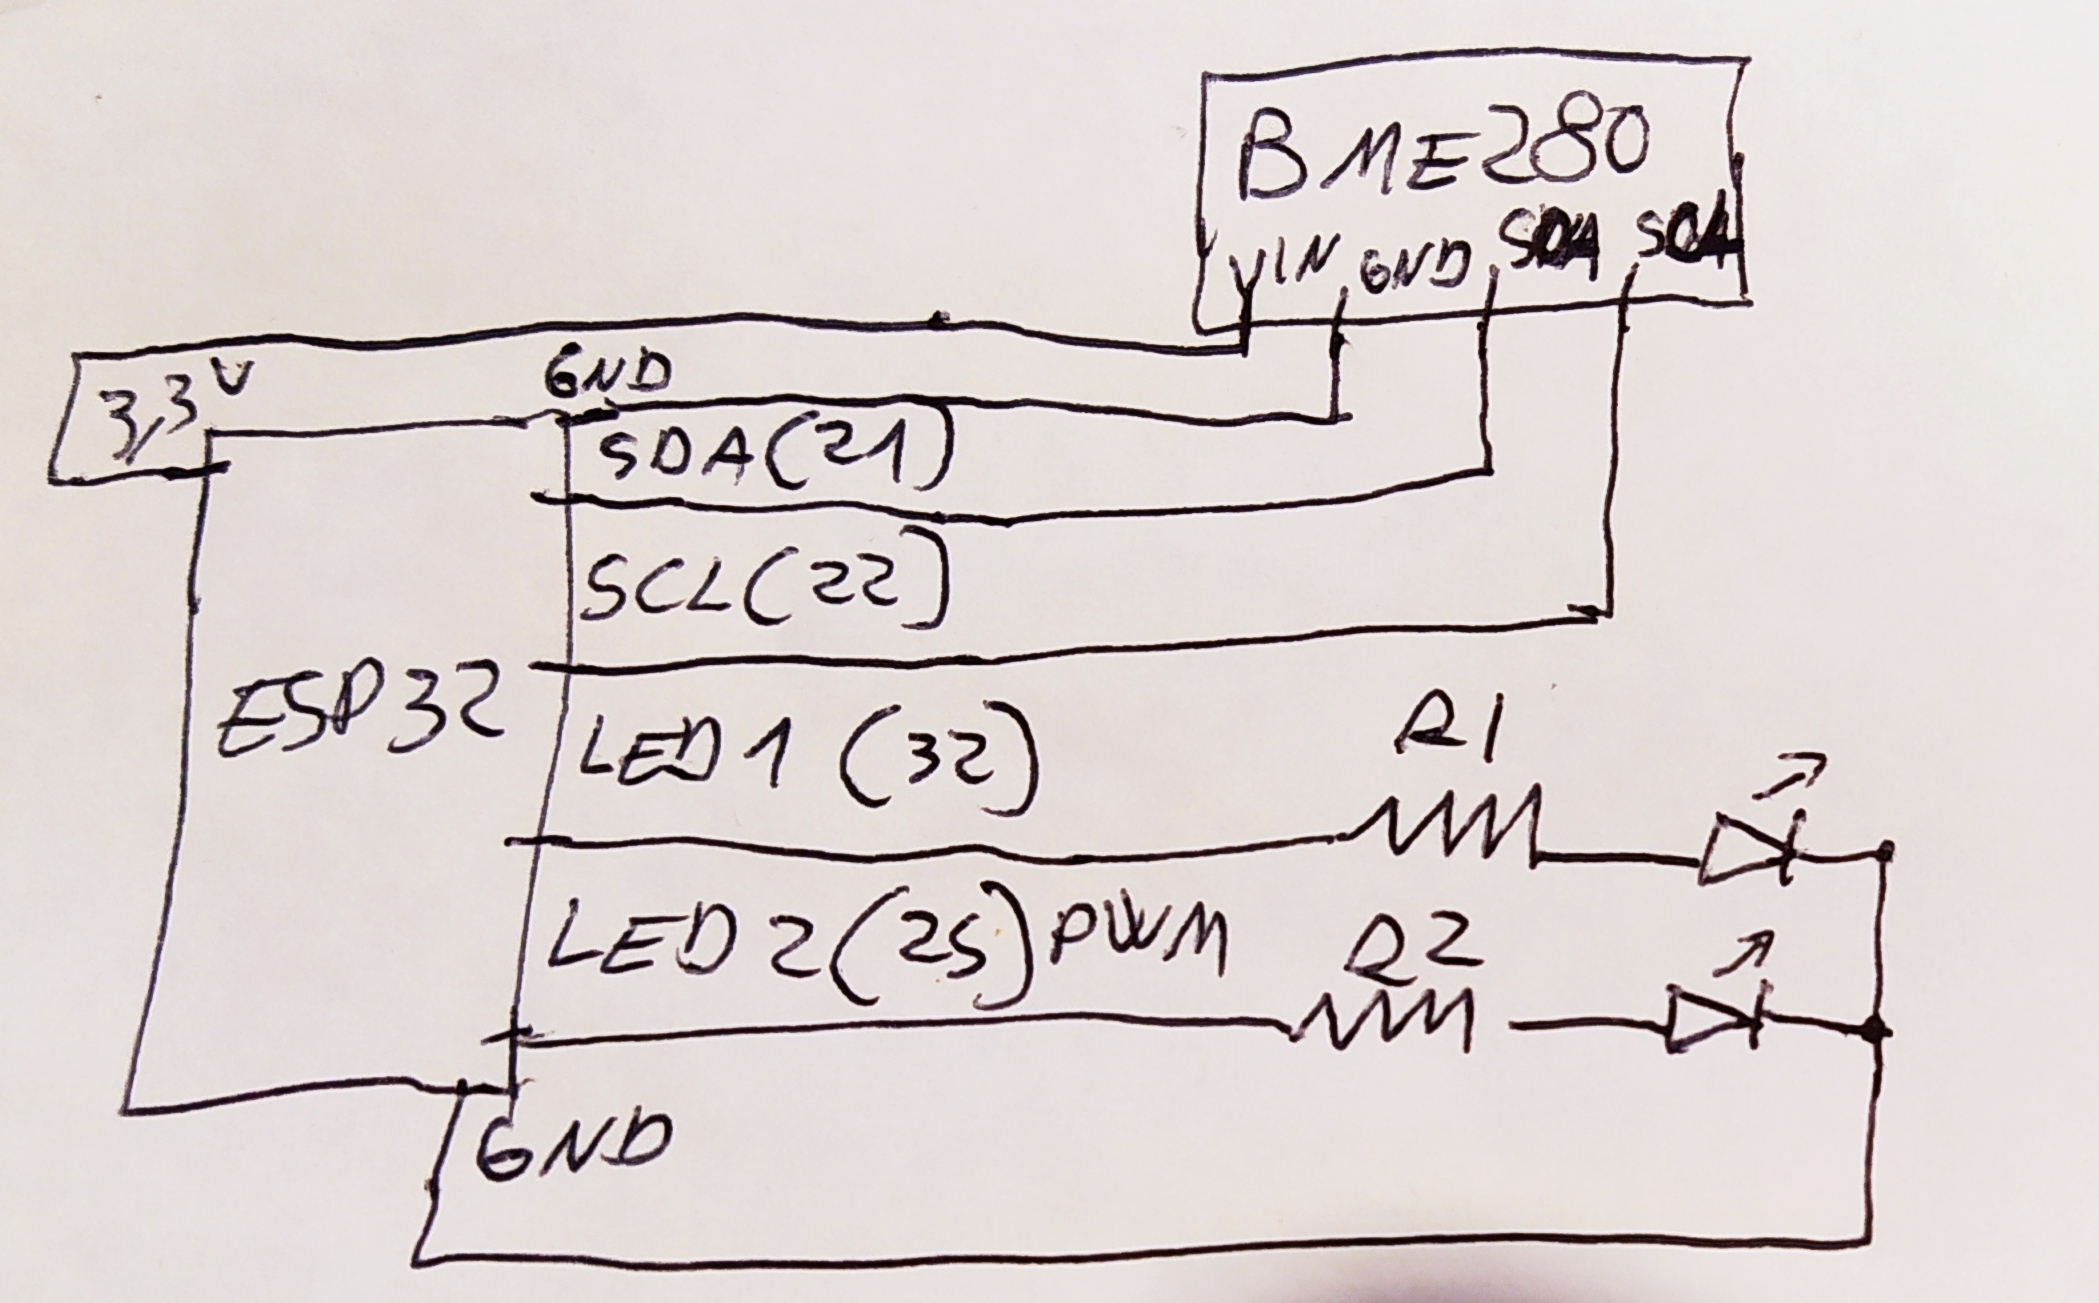 BME280
VIN GND SDA
3,3V
GND
SDA(21)
SCL(22)
ESP32
LED1 (32)
R1
LED2(25)PWM
R2
GND